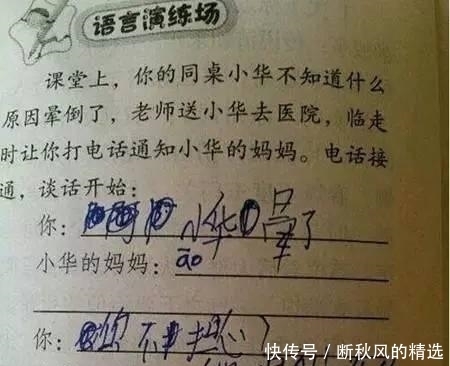 语言演练场
课堂上，你的同桌小华不知道什么
原因晕倒了，老师送小华去医院，临走
时让你打电话通知小华的妈妈。电话接
通，谈话开始：
你：小华晕了
小华的妈妈：āo
你：你不要担心
快传号／断秋风的精选